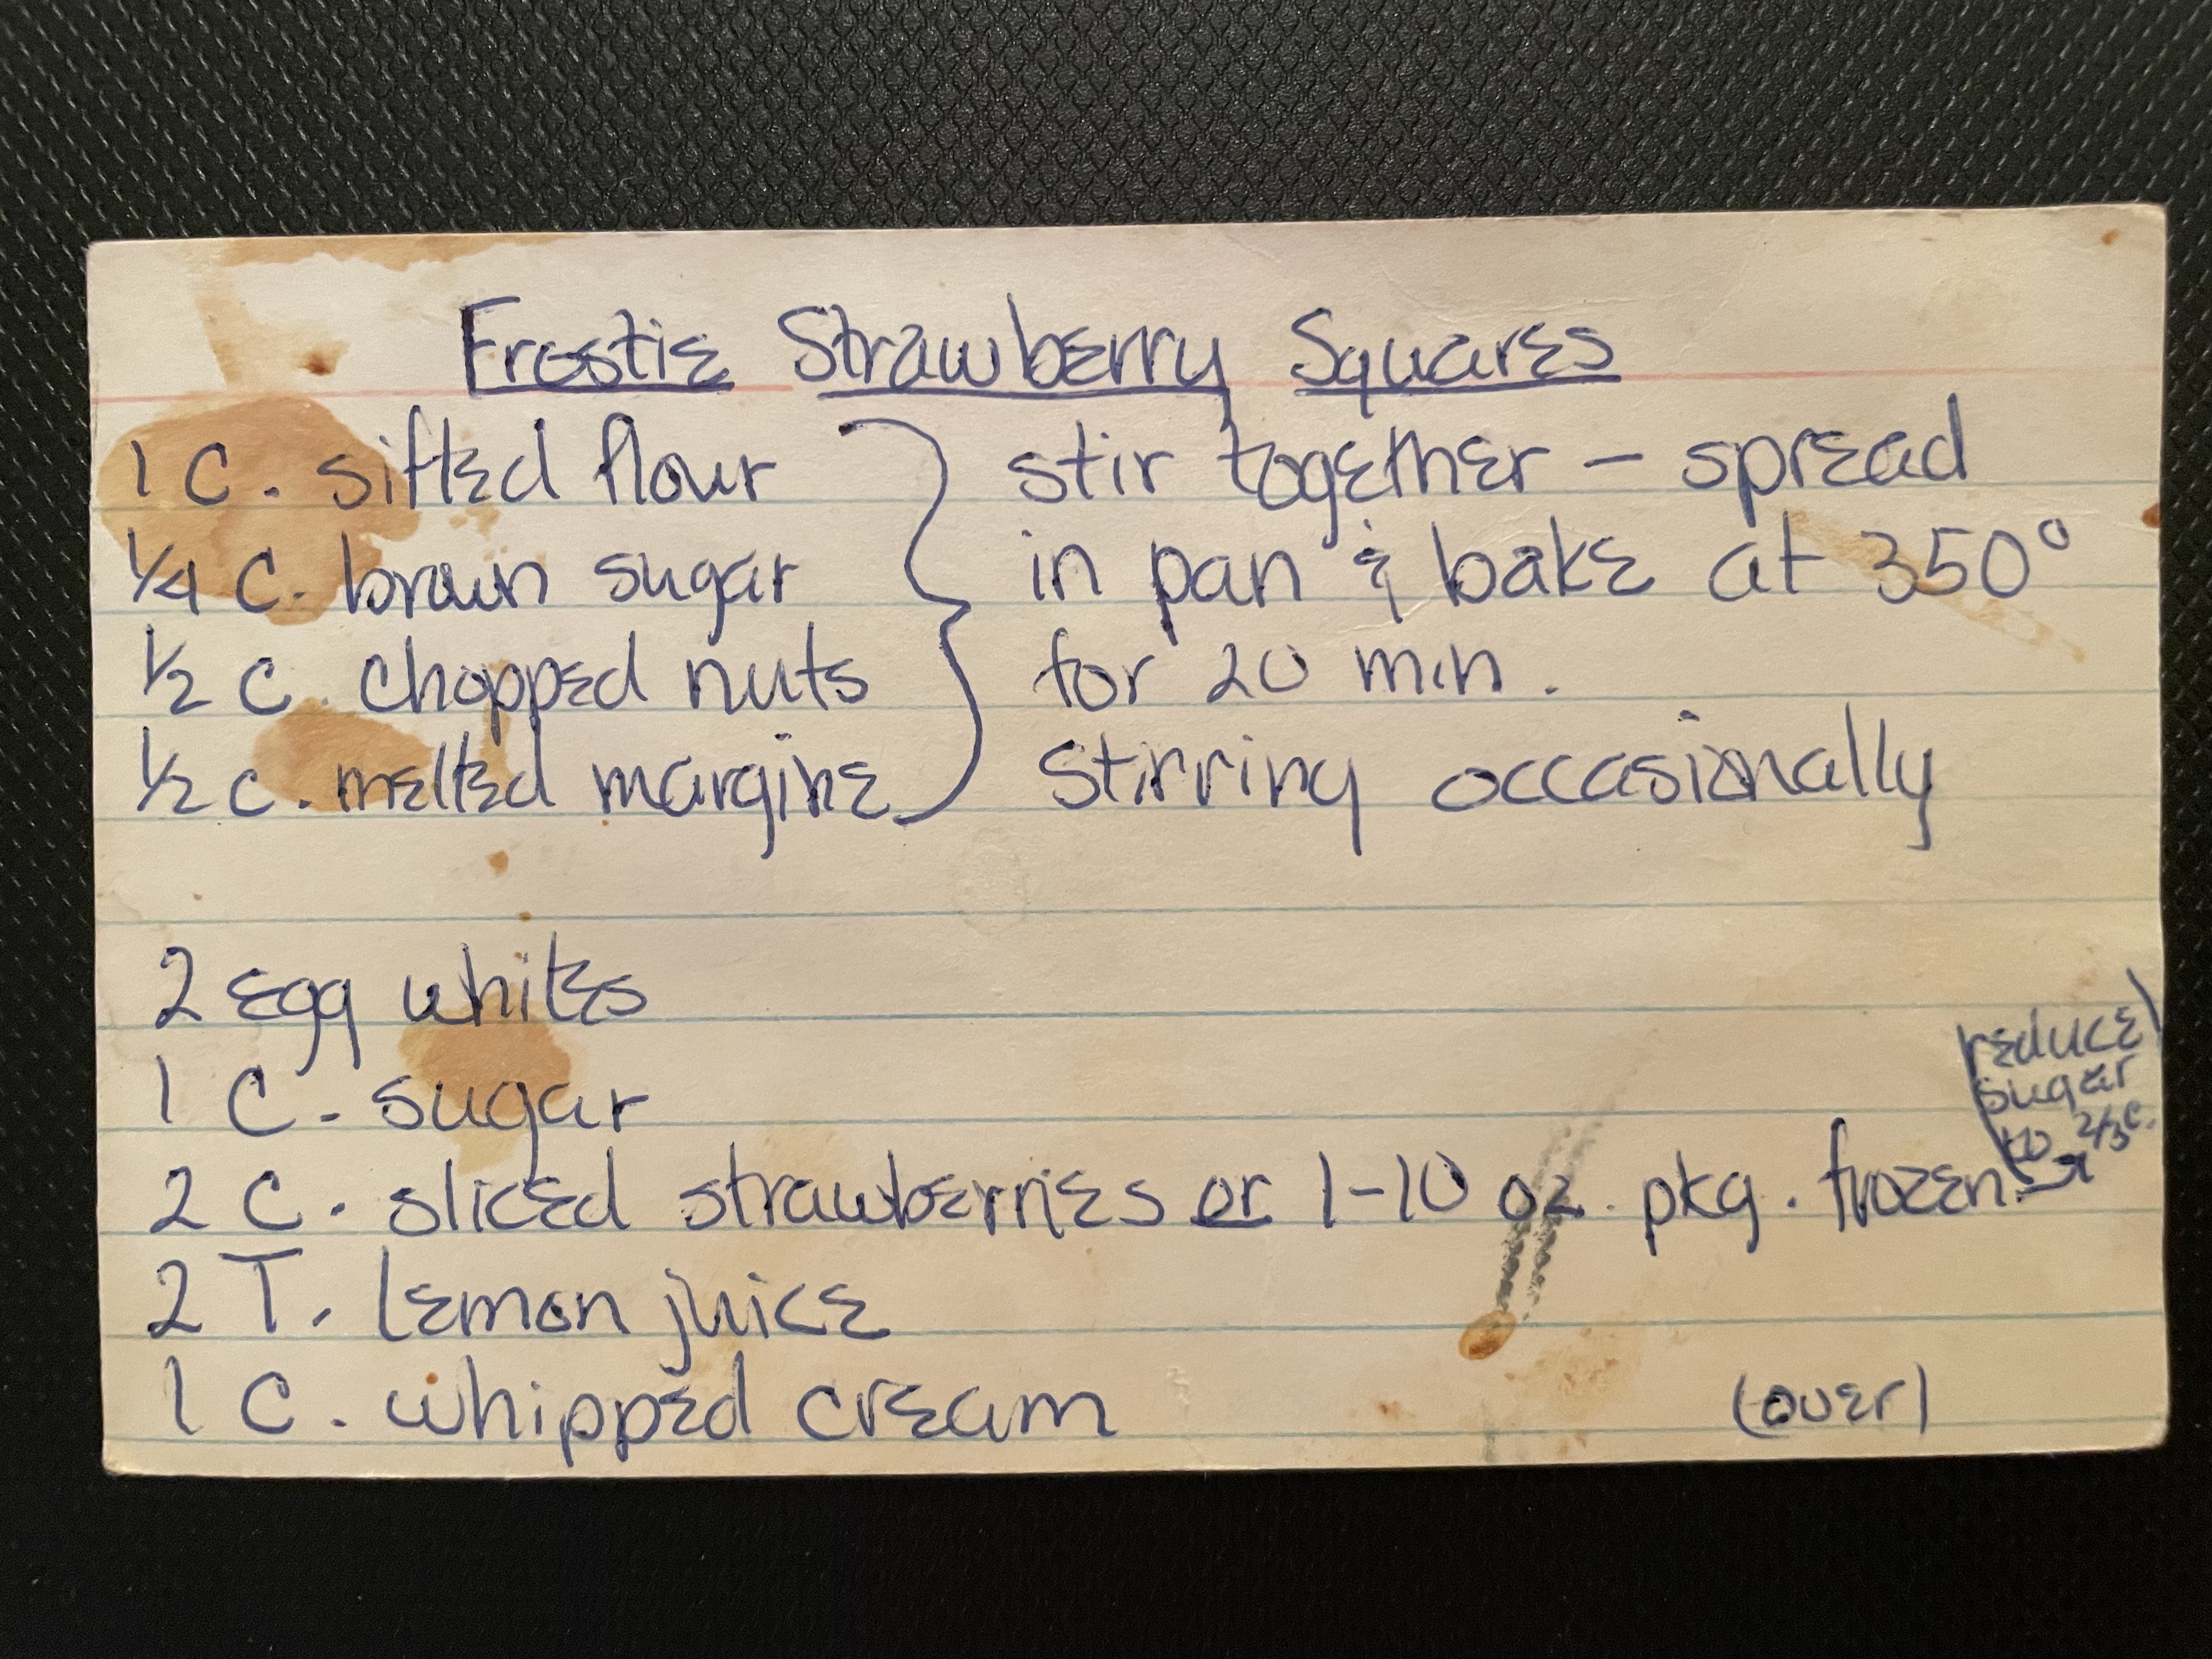 Frostie Strawberry Squares
1 C. sifted flour } stir together - spread
1/4 C. brown sugar in pan & bake at 350°
1/2 C. chopped nuts for 20 min.
1/2 c. melted margine stirring occasionally
2 Egg whites
1 C. sugar
reduce
sugar
to 2/3 c.
2 C. sliced strawberries or 1-10 oz. pkg. frozen →
2 T. lemon juice
1 C. whipped cream (over)